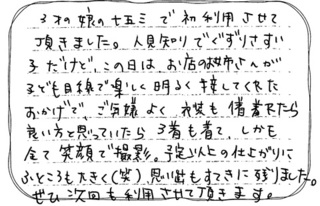 3才の娘の七五三で初利用させて
頂きました。人見知りでぐずりやすい
子だけど、この日は、お店のお姉さんが
子ども目線で楽しく明るく接してくれた
おかげで、ご機嫌よく、衣装も1着着れたら
良い方と思っていたら3着も着て、しかも
全て笑顔で撮影。予想以上の仕上がりに
ふところも大きく(笑)思い出もすてきに残りました。
ぜひ次回も利用させて頂きます。